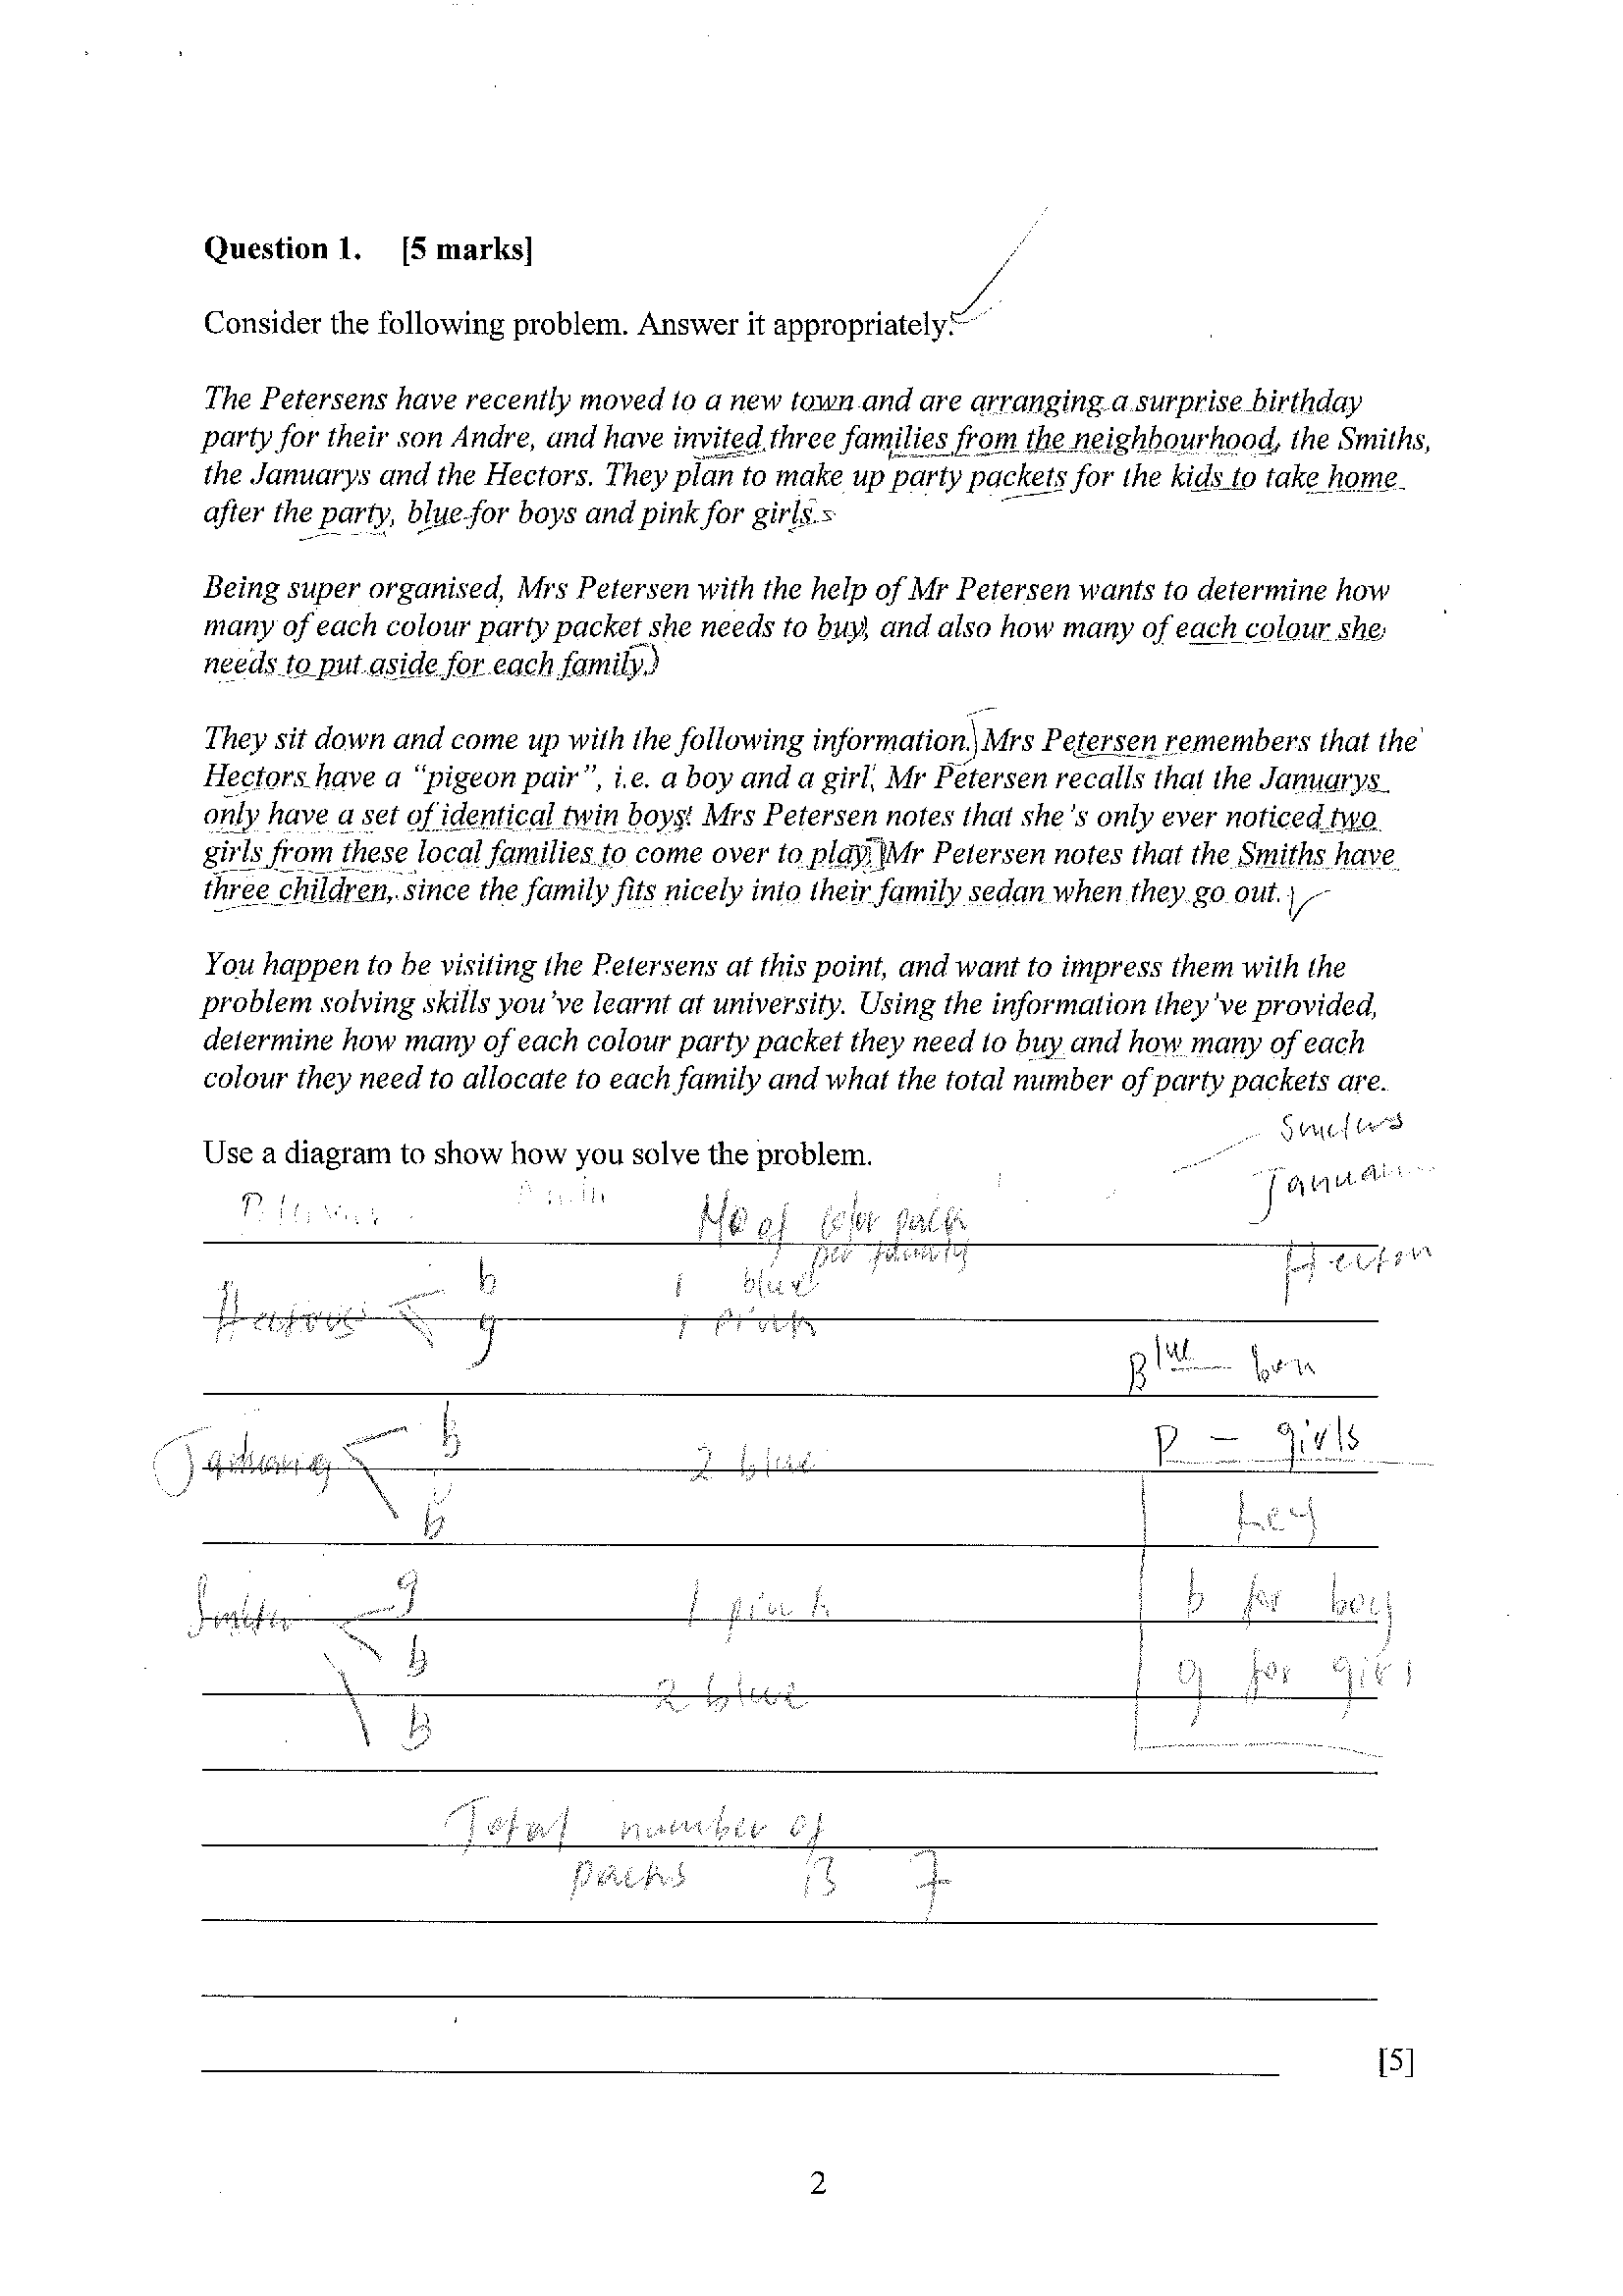 Question 1. [5 marks]
Consider the following problem. Answer it appropriately.
The Petersens have recently moved to a new town and are arranging a surprise birthday
party for their son Andre, and have invited three families from the neighbourhood, the Smiths,
the Januarys and the Hectors. They plan to make up party packets for the kids to take home
after the party, blue for boys and pink for girls.
Being super organised, Mrs Petersen with the help of Mr Petersen wants to determine how
many of each colour party packet she needs to buy, and also how many of each colour she
needs to put aside for each family.
They sit down and come up with the following information. Mrs Petersen remembers that the
Hectors have a “pigeon pair”, i.e. a boy and a girl. Mr Petersen recalls that the Januarys
only have a set of identical twin boys. Mrs Petersen notes that she's only ever noticed two
girls from these local families to come over to play. Mr Petersen notes that the Smiths have
three children, since the family fits nicely into their family sedan when they go out.
You happen to be visiting the Petersens at this point, and want to impress them with the
problem solving skills you've learnt at university. Using the information they've provided,
determine how many of each colour party packet they need to buy and how many of each
colour they need to allocate to each family and what the total number of party packets are.
Use a diagram to show how you solve the problem.
No of color packs
per family
b 1 blue
g 1 pink
Blue
b 2 blue P – girls
b key
g 1 pink b for boy
b g for girl
2 blue
b
Total number of
packs 7
[5]
2